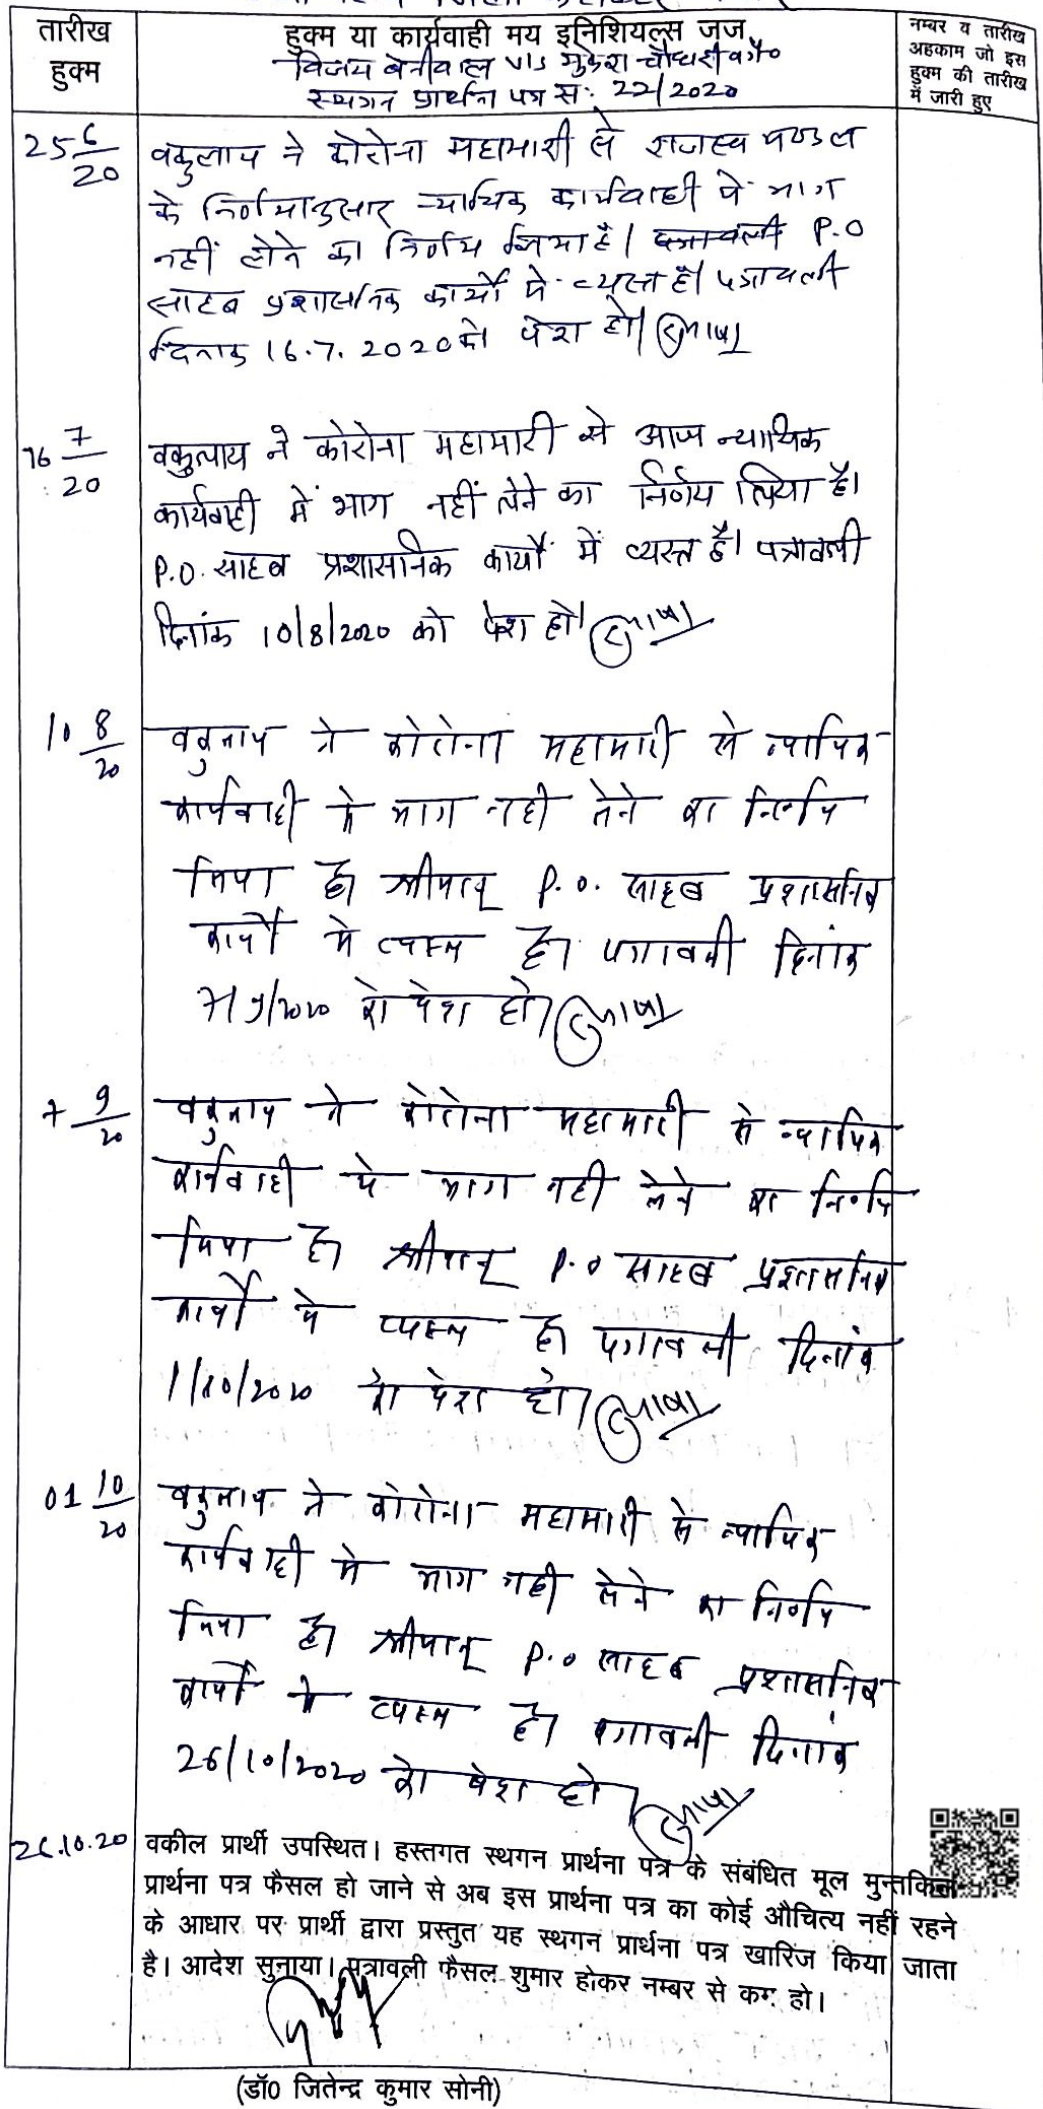 तारीख
हुक्म
हुक्म या कार्यवाही मय इनिशियल्स जज
विजय बेनीवाल V/S मुकेश चौधरी वगै०
स्थगन प्रार्थना पत्र स: 22/2020
नम्बर व तारीख
अहकाम जो इस
हुक्म की तारीख
में जारी हुए
25 6/20
वकुलाय ने कोरोना महामारी से राजस्व मण्डल
के निर्णयानुसार न्यायिक कार्यवाही में भाग
नहीं लेने का निर्णय लिया है। पत्रावली P.O
साहब प्रशासनिक कार्यो में व्यस्त है। पत्रावली
दिनांक 16.7.2020 को पेश हो।
16 7/20
वकुलाय ने कोरोना महामारी से आज न्यायिक
कार्यवाही में भाग नहीं लेने का निर्णय लिया है।
P.O. साहब प्रशासनिक कार्यो में व्यस्त है। पत्रावली
दिनांक 10/8/2020 को पेश हो।
10 8/20
वकुलाय ने कोरोना महामारी से न्यायिक
कार्यवाही मे भाग नही लेने का निर्णय
लिया है। श्रीमान् P.O. साहब प्रशासनिक
कार्यो मे व्यस्त है। पत्रावली दिनांक
7/9/2020 को पेश हो।
7 9/20
वकुलाय ने कोरोना महामारी से न्यायिक
कार्यवाही मे भाग नही लेने का निर्णय
लिया है। श्रीमान् P.O साहब प्रशासनिक
कार्यो मे व्यस्त है। पत्रावली दिनांक
1/10/2020 को पेश हो।
01 10/20
वकुलाय ने कोरोना महामारी से न्यायिक
कार्यवाही मे भाग नही लेने का निर्णय
लिया है। श्रीमान् P.O साहब प्रशासनिक
कार्यो मे व्यस्त है। पत्रावली दिनांक
26/10/2020 को पेश हो।
26.10.20
वकील प्रार्थी उपस्थित। हस्तगत स्थगन प्रार्थना पत्र के संबंधित मूल मुन्तकिल
प्रार्थना पत्र फैसल हो जाने से अब इस प्रार्थना पत्र का कोई औचित्य नहीं रहने
के आधार पर प्रार्थी द्वारा प्रस्तुत यह स्थगन प्रार्थना पत्र खारिज किया जाता
है। आदेश सुनाया। पत्रावली फैसल शुमार होकर नम्बर से कम हो।
(डॉ0 जितेन्द्र कुमार सोनी)